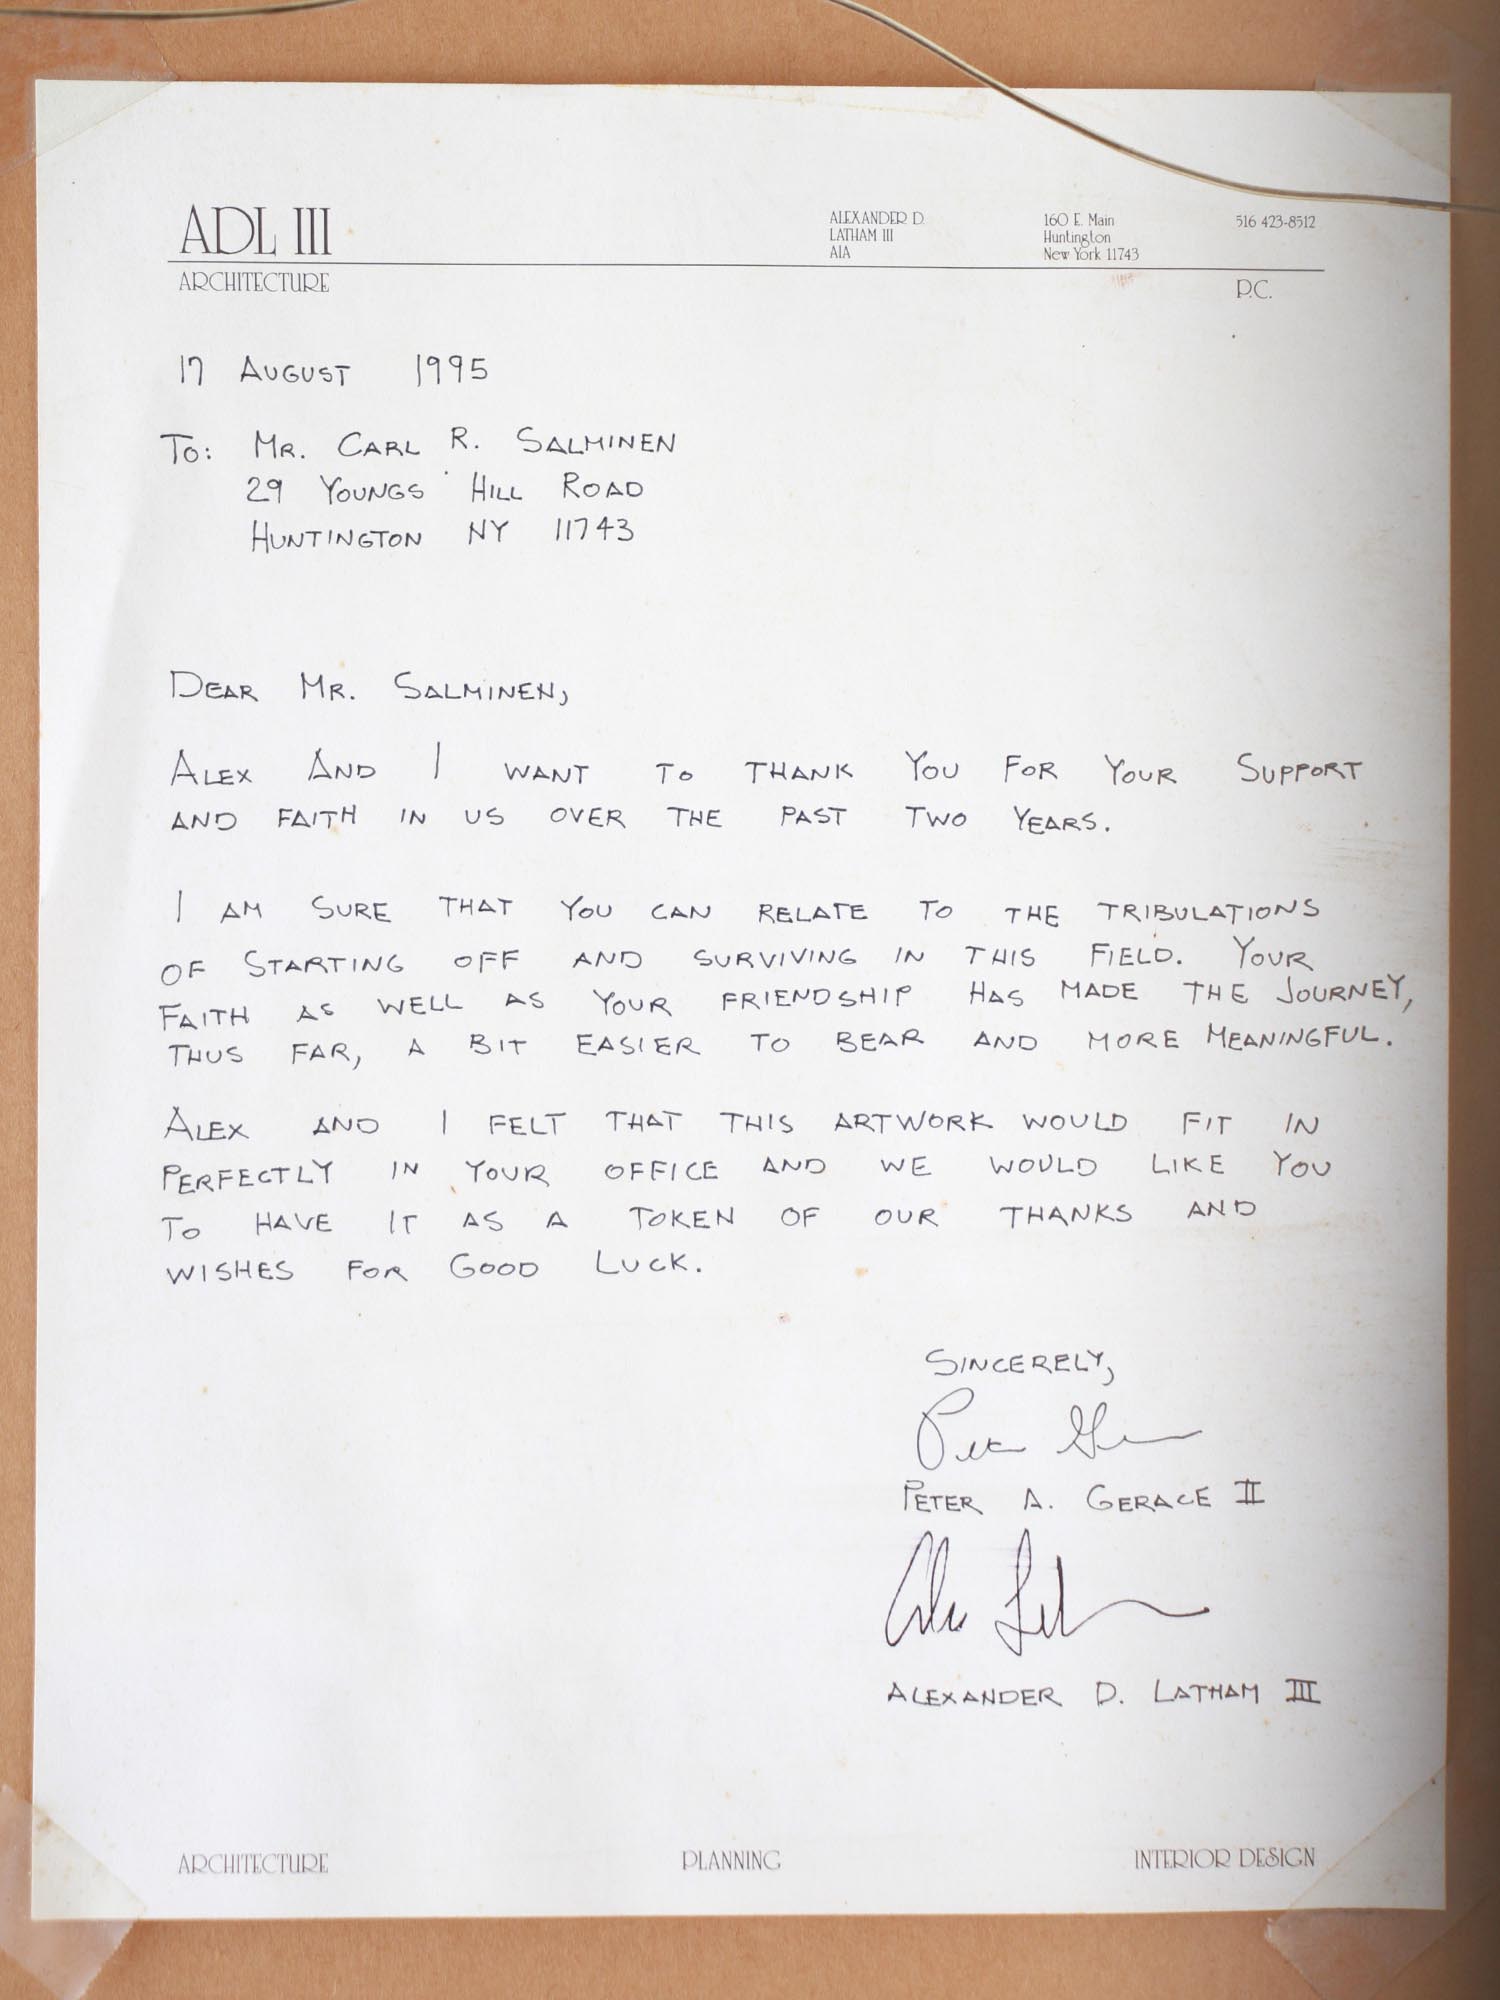 ADL III
ARCHITECTURE
ALEXANDER D.
LATHAM III
AIA
160 E. Main
Huntington
New York 11743
516 423-8512
P.C.
17 AUGUST 1995
TO: MR. CARL R. SALMINEN
29 YOUNGS HILL ROAD
HUNTINGTON NY 11743
DEAR MR. SALMINEN,
ALEX AND I WANT TO THANK YOU FOR YOUR SUPPORT
AND FAITH IN US OVER THE PAST TWO YEARS.
I AM SURE THAT YOU CAN RELATE TO THE TRIBULATIONS
OF STARTING OFF AND SURVIVING IN THIS FIELD. YOUR
FAITH AS WELL AS YOUR FRIENDSHIP HAS MADE THE JOURNEY,
THUS FAR, A BIT EASIER TO BEAR AND MORE MEANINGFUL.
ALEX AND I FELT THAT THIS ARTWORK WOULD FIT IN
PERFECTLY IN YOUR OFFICE AND WE WOULD LIKE YOU
TO HAVE IT AS A TOKEN OF OUR THANKS AND
WISHES FOR GOOD LUCK.
SINCERELY,
PETER A. GERACE II
ALEXANDER D. LATHAM III
ARCHITECTURE
PLANNING
INTERIOR DESIGN